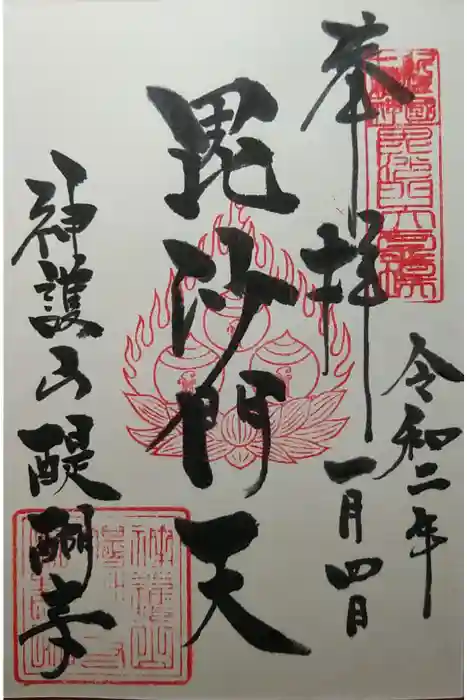 奉拝
令和二年
一月四日
毘沙門天
神護山醍醐寺